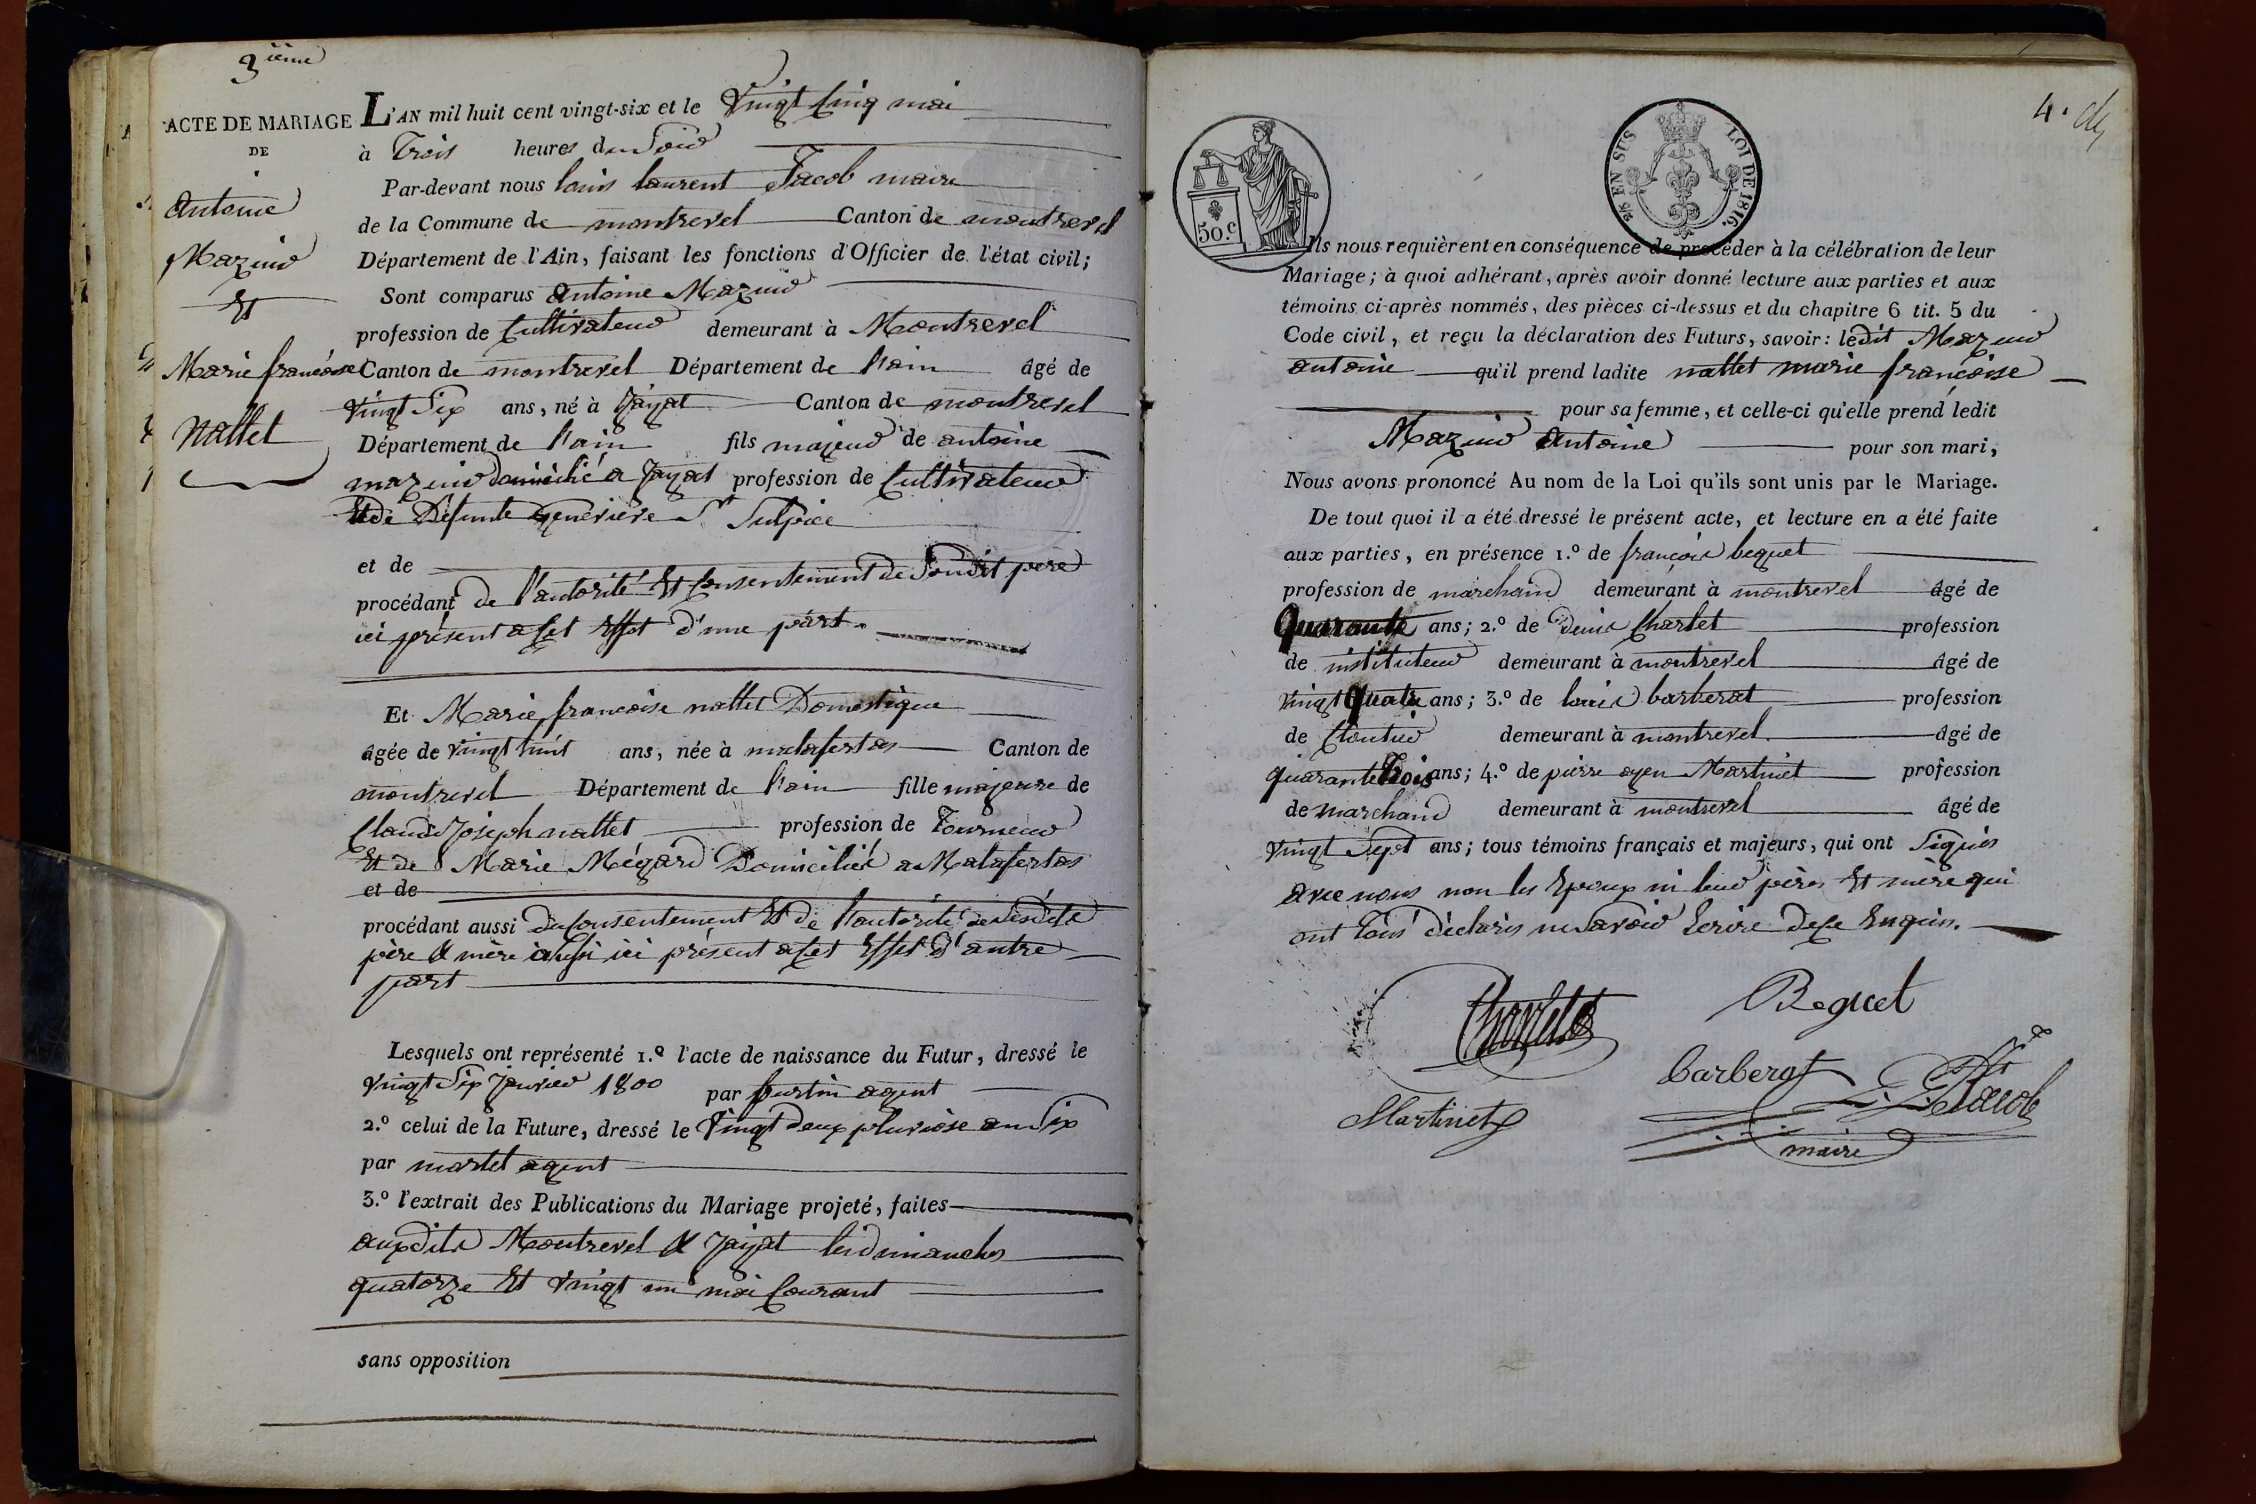 3ième
ACTE DE MARIAGE
DE
Antoine
Mazuir
Et
Marie françoise
Nallet
L'AN mil huit cent vingt-six et le Vingt Cinq mai
à Trois heures du Soir
Par-devant nous louis laurent Jacob maire
de la Commune de montrevel Canton de montrevel
Département de l'Ain, faisant les fonctions d'Officier de l'état civil;
Sont comparus Antoine Mazuir
profession de Cultivateur demeurant à Montrevel
Canton de montrevel Département de l'ain âgé de
Vingt Six ans, né à Jayat Canton de montrevel
Département de l'ain fils majeur de antoine
mazuir Domicilié a Jayat profession de Cultivateur
Et de Défunte Geneviève St Sulpice
et de
procédant de l'autorité Et Consentement de Sondit père
ici présent a Cet Effet d'une part.
Et Marie françoise nallet Domestique
âgée de vingt huit ans, née à malafertas Canton de
montrevel Département de l'ain fille majeure de
Claude Joseph nallet profession de Tourneur
Et de Marie Mégard Domiciliés a Malafertas
et de
procédant aussi du Consentement Et de l'autorité de sesdits
père & mère aussi ici présent a Cet Effet d'autre
part
Lesquels ont représenté 1.º l'acte de naissance du Futur, dressé le
vingt Six Janvier 1800 par agent
2.º celui de la Future, dressé le Vingt Deux pluviose an Six
par martel agent
3.º l'extrait des Publications du Mariage projeté, faites
auxdits Montrevel & Jayat les dimanches
quatorze Et Vingt un mai Courant
sans opposition
4.
50.c
2/5 EN SUS
LOI DE 1816.
Ils nous requièrent en conséquence de procéder à la célébration de leur
Mariage; à quoi adhérant, après avoir donné lecture aux parties et aux
témoins ci-après nommés, des pièces ci-dessus et du chapitre 6 tit. 5 du
Code civil, et reçu la déclaration des Futurs, savoir: ledit Mazuir
antoine qu'il prend ladite nallet marie françoise
pour sa femme, et celle-ci qu'elle prend ledit
Mazuir Antoine pour son mari,
Nous avons prononcé Au nom de la Loi qu'ils sont unis par le Mariage.
De tout quoi il a été dressé le présent acte, et lecture en a été faite
aux parties, en présence 1.º de françois bequet
profession de marchand demeurant à montrevel âgé de
Quarante ans; 2.º de Denis Charlet profession
de instituteur demeurant à montrevel âgé de
vingt Quatre ans; 3.º de louis barberat profession
de Cloutier demeurant à montrevel âgé de
quarante Trois ans; 4.º de pierre Martinet profession
de marchand demeurant à montrevel âgé de
vingt Sept ans; tous témoins français et majeurs, qui ont Signés
avec nous non les Epoux ni leur pères Et mère qui
ont Tous déclarés ne Savoir Ecrire de ce Enquis.
Charlet
Bequet
barberat
L. Lt Jacob
Martinet
maire